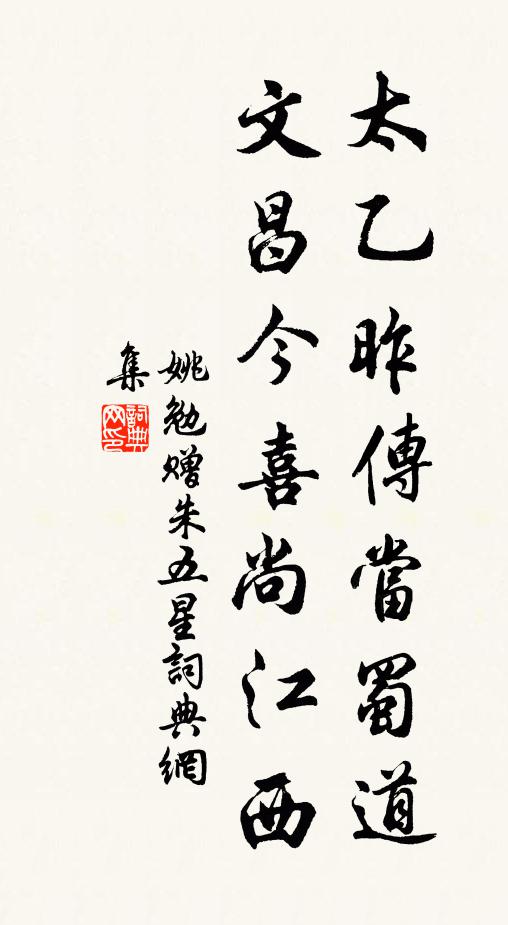 太乙昨傳當蜀道
文昌今喜尚江西
姚勉贈朱五星詞典網
集
詞典網印